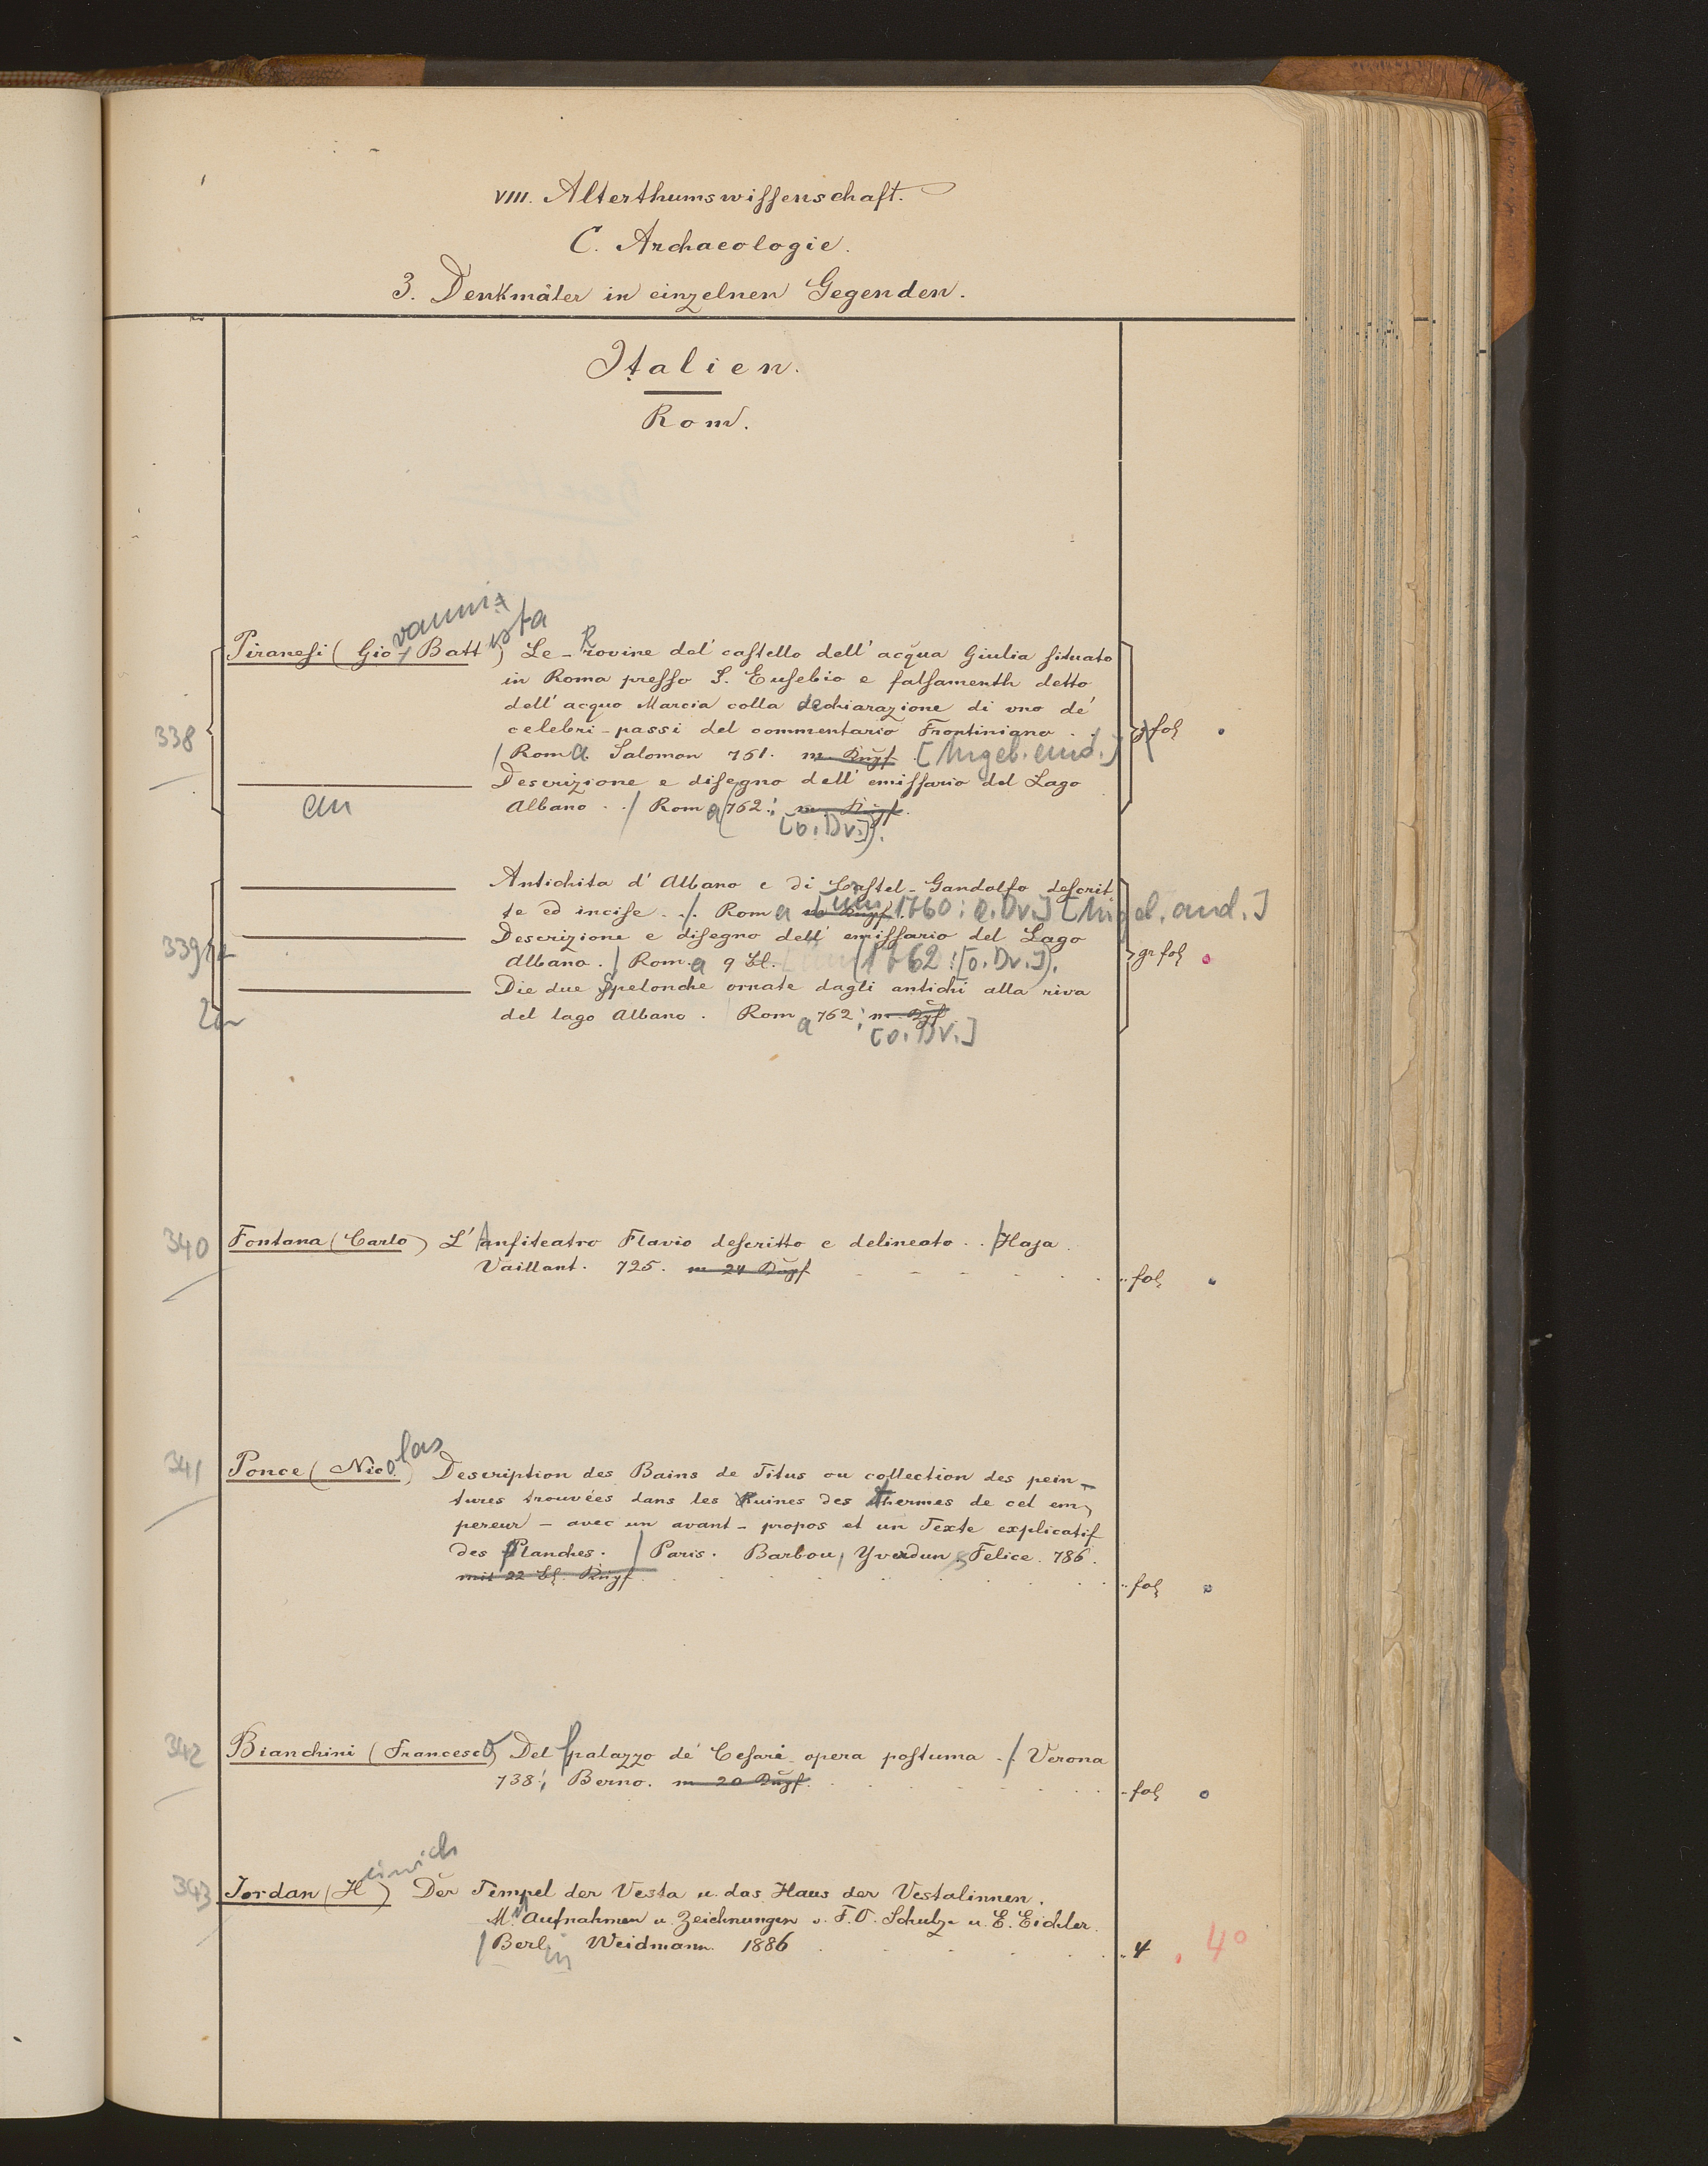 VIII. Alterthumswissenschaft.
C. Archaeologie.
3. Denkmäler in einzelnen Gegenden.
Italien.
Rom.
338 Piranesi (Giovanni Battista) Le Rovine del castello dell' acqua Giulia situato
in Roma presso S. Eusebio e falsamenth detto
dell' acquo Marcia colla dechiarazione di uno de'
celebri-passi del commentario Frontiniano . . gr fol
/ Roma. Salomon 761. m. Kupf. [Angeb. und.]
——— Descrizione e disegno dell' emissario del Lago
an Albano . . / Roma (762: m. Kupf.
[o. Dr.]).
——— Antichita d' Albano e di Castel-Gandolfo descrit
te ed incise . . / Roma m. Kupf. [um 1760: o. Dr.] [Angeb. and.]
339 ——— Descrizione e disegno dell' emissario del Lago
Albano. / Roma 9 Bl. (1762: [o. Dr.]). gr fol
——— Die due Spelonche ornate dagli antichi alla riva
2an del lago Albano. Roma 762; m. Kpf
[o. Dr.]
340 Fontana (Carlo) L' Anfiteatro Flavio descritto e delineato . . / Haja.
Vaillant. 725. m 24 Kupf fol
341 Ponce (Nicolas) Description des Bains de Titus ou collection des pein-
tures trouvées dans les Ruines des Thermes de cet em-
pereur - avec un avant-propos et un Texte explicatif
des Planches. / Paris. Barbou, Yverdun. Felice. 786.
mit 22 Bl. Kupf fol
342 Bianchini (Francesco) Del palazzo de' Cesari opera postuma . / Verona
738; Berno. m 20 Kupf. fol
343 Jordan (Heinrich) Der Tempel der Vesta u. das Haus der Vestalinnen.
Mit Aufnahmen u. Zeichnungen v. F. O. Schulze u. E. Eichler.
/ Berlin Weidmann. 1886 4 4°